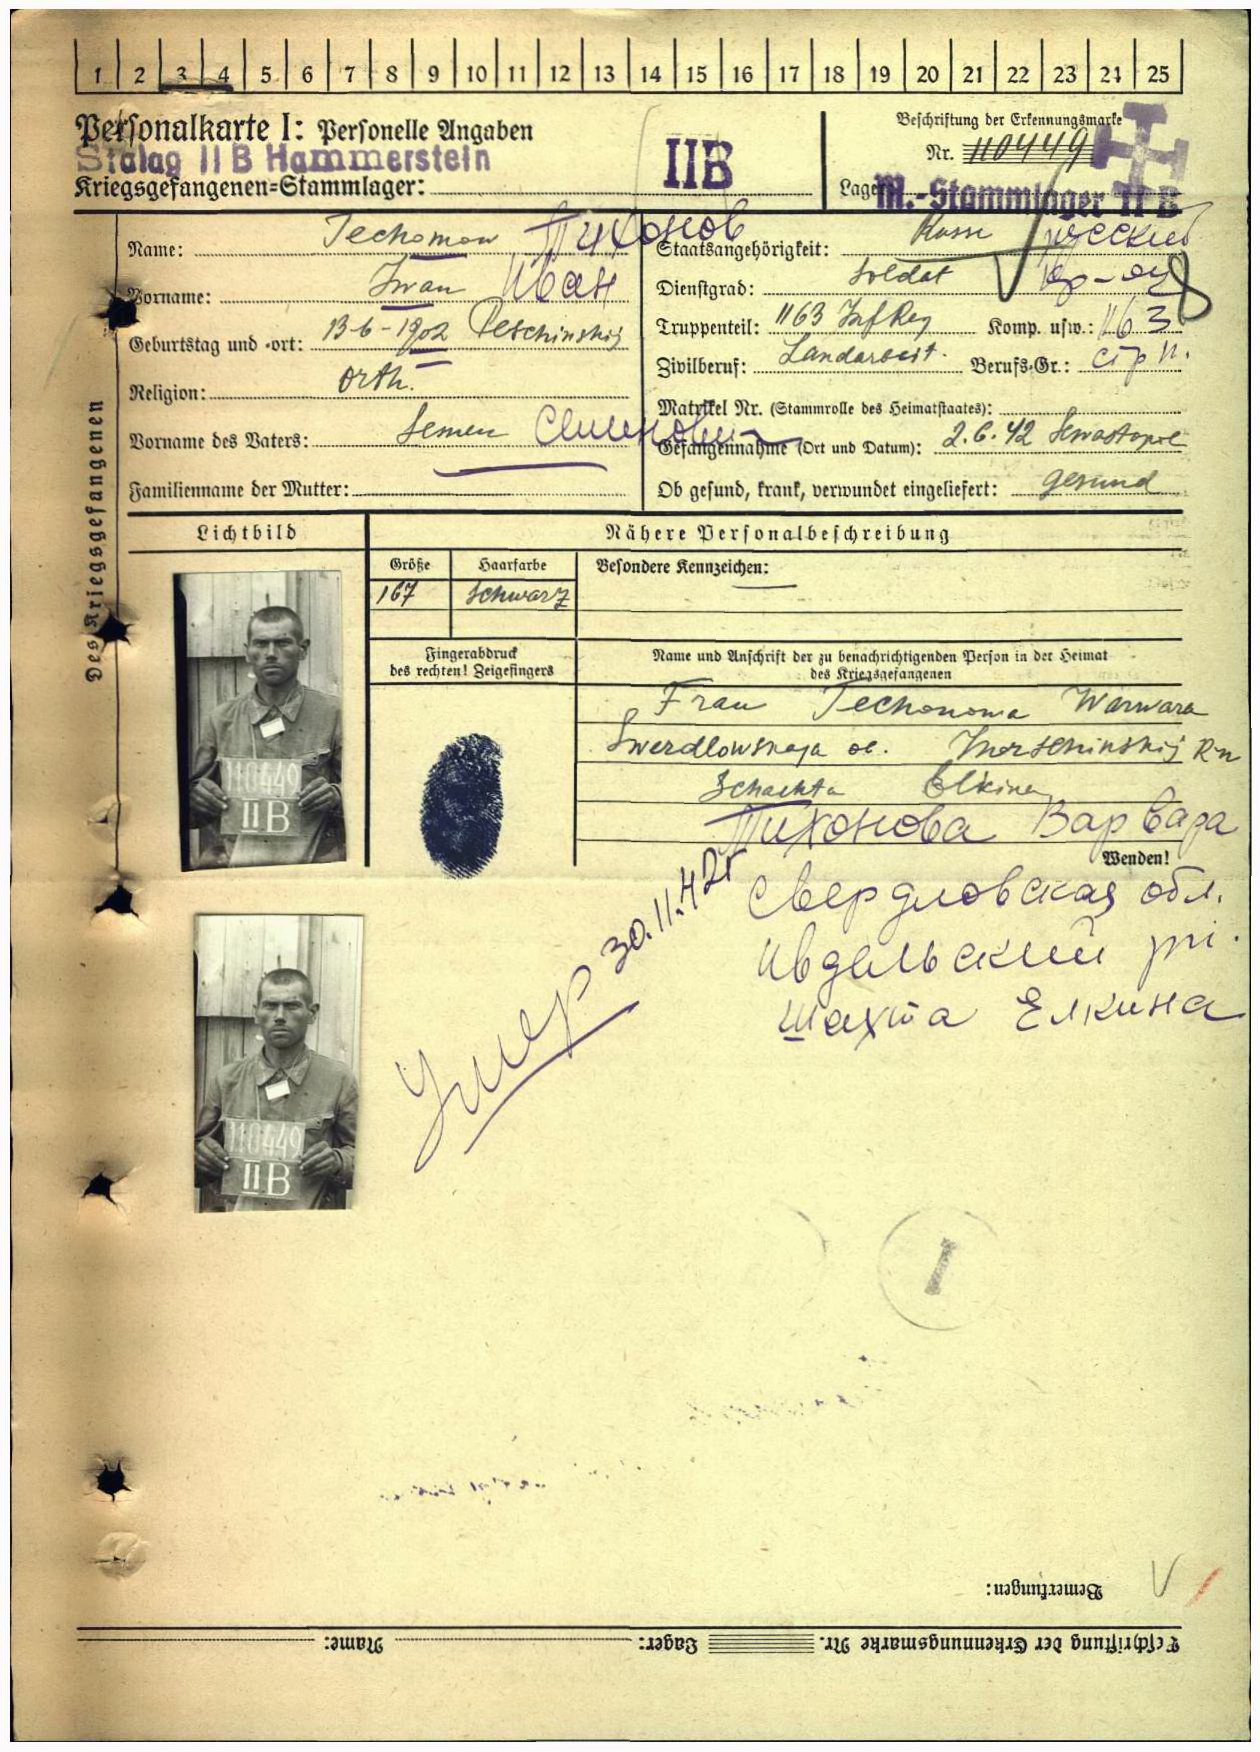 1 2 3 4 5 6 7 8 9 10 11 12 13 14 15 16 17 18 19 20 21 22 23 24 25
Personalkarte I: Personelle Angaben
Stalag II B Hammerstein
Kriegsgefangenen=Stammlager:
IIB
Beschriftung der Erkennungsmarke
Nr. 110449
Lager: M.-Stammlager II B
Des Kriegsgefangenen
Name: Techonow Тихонов
Vorname: Iwan Иван
Geburtstag und -ort: 13-6-1902 Peschinskij
Religion: orth.
Vorname des Vaters: Semen Семенович
Familienname der Mutter:
Staatsangehörigkeit: Russe русский
Dienstgrad: Soldat кр-ец
8
Truppenteil: 1163 Inf Reg Komp. usw.: 1163
Zivilberuf: Landarbeit. Berufs-Gr.: стр п.
Matrikel Nr. (Stammrolle des Heimatstaates):
Gefangennahme (Ort und Datum): 2.6.42 Sewastopol
Ob gesund, krank, verwundet eingeliefert: gesund
Lichtbild
Nähere Personalbeschreibung
Größe Haarfarbe Besondere Kennzeichen:
167 schwarz
Fingerabdruck
des rechten! Zeigefingers
Name und Anschrift der zu benachrichtigenden Person in der Heimat
des Kriegsgefangenen
Frau Techonowa Warwara
Swerdlowskaja
Schachta Elkina
Тихонова Варвара
Wenden!
Свердловская обл.
Ивдельский
шахта Елкина
Умер 30.11.42г
110449
II B
110449
II B
I
Bemerkungen:
Beschriftung der Erkennungsmarke Nr. Lager: Name: